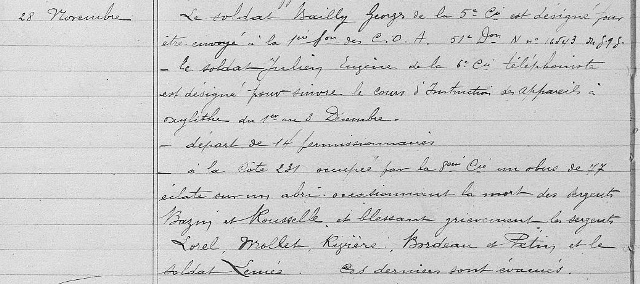 28 Novembre
Le soldat Bailly Georges de la 5e Cie est désigné pour
être envoyé à la 1ère des C. O. A. 51e Don N no 16543
- Le soldat Julien Eugène de la 6e Cie téléphoniste
est désigné pour suivre le cours d'Instruction des appareils à
oxylithe du 1er au 8 Décembre.
- départ de 14 permissionnaires
- à la Cote 231 occupée par la 8ème Cie un obus de 77
éclate sur un abri occasionnant la mort des sergents
Bazin et Rousselle et blessant grièvement les sergents
Lorel, Mollet, Rizière, Bordeau et Patin et le
soldat Ces derniers sont évacués.